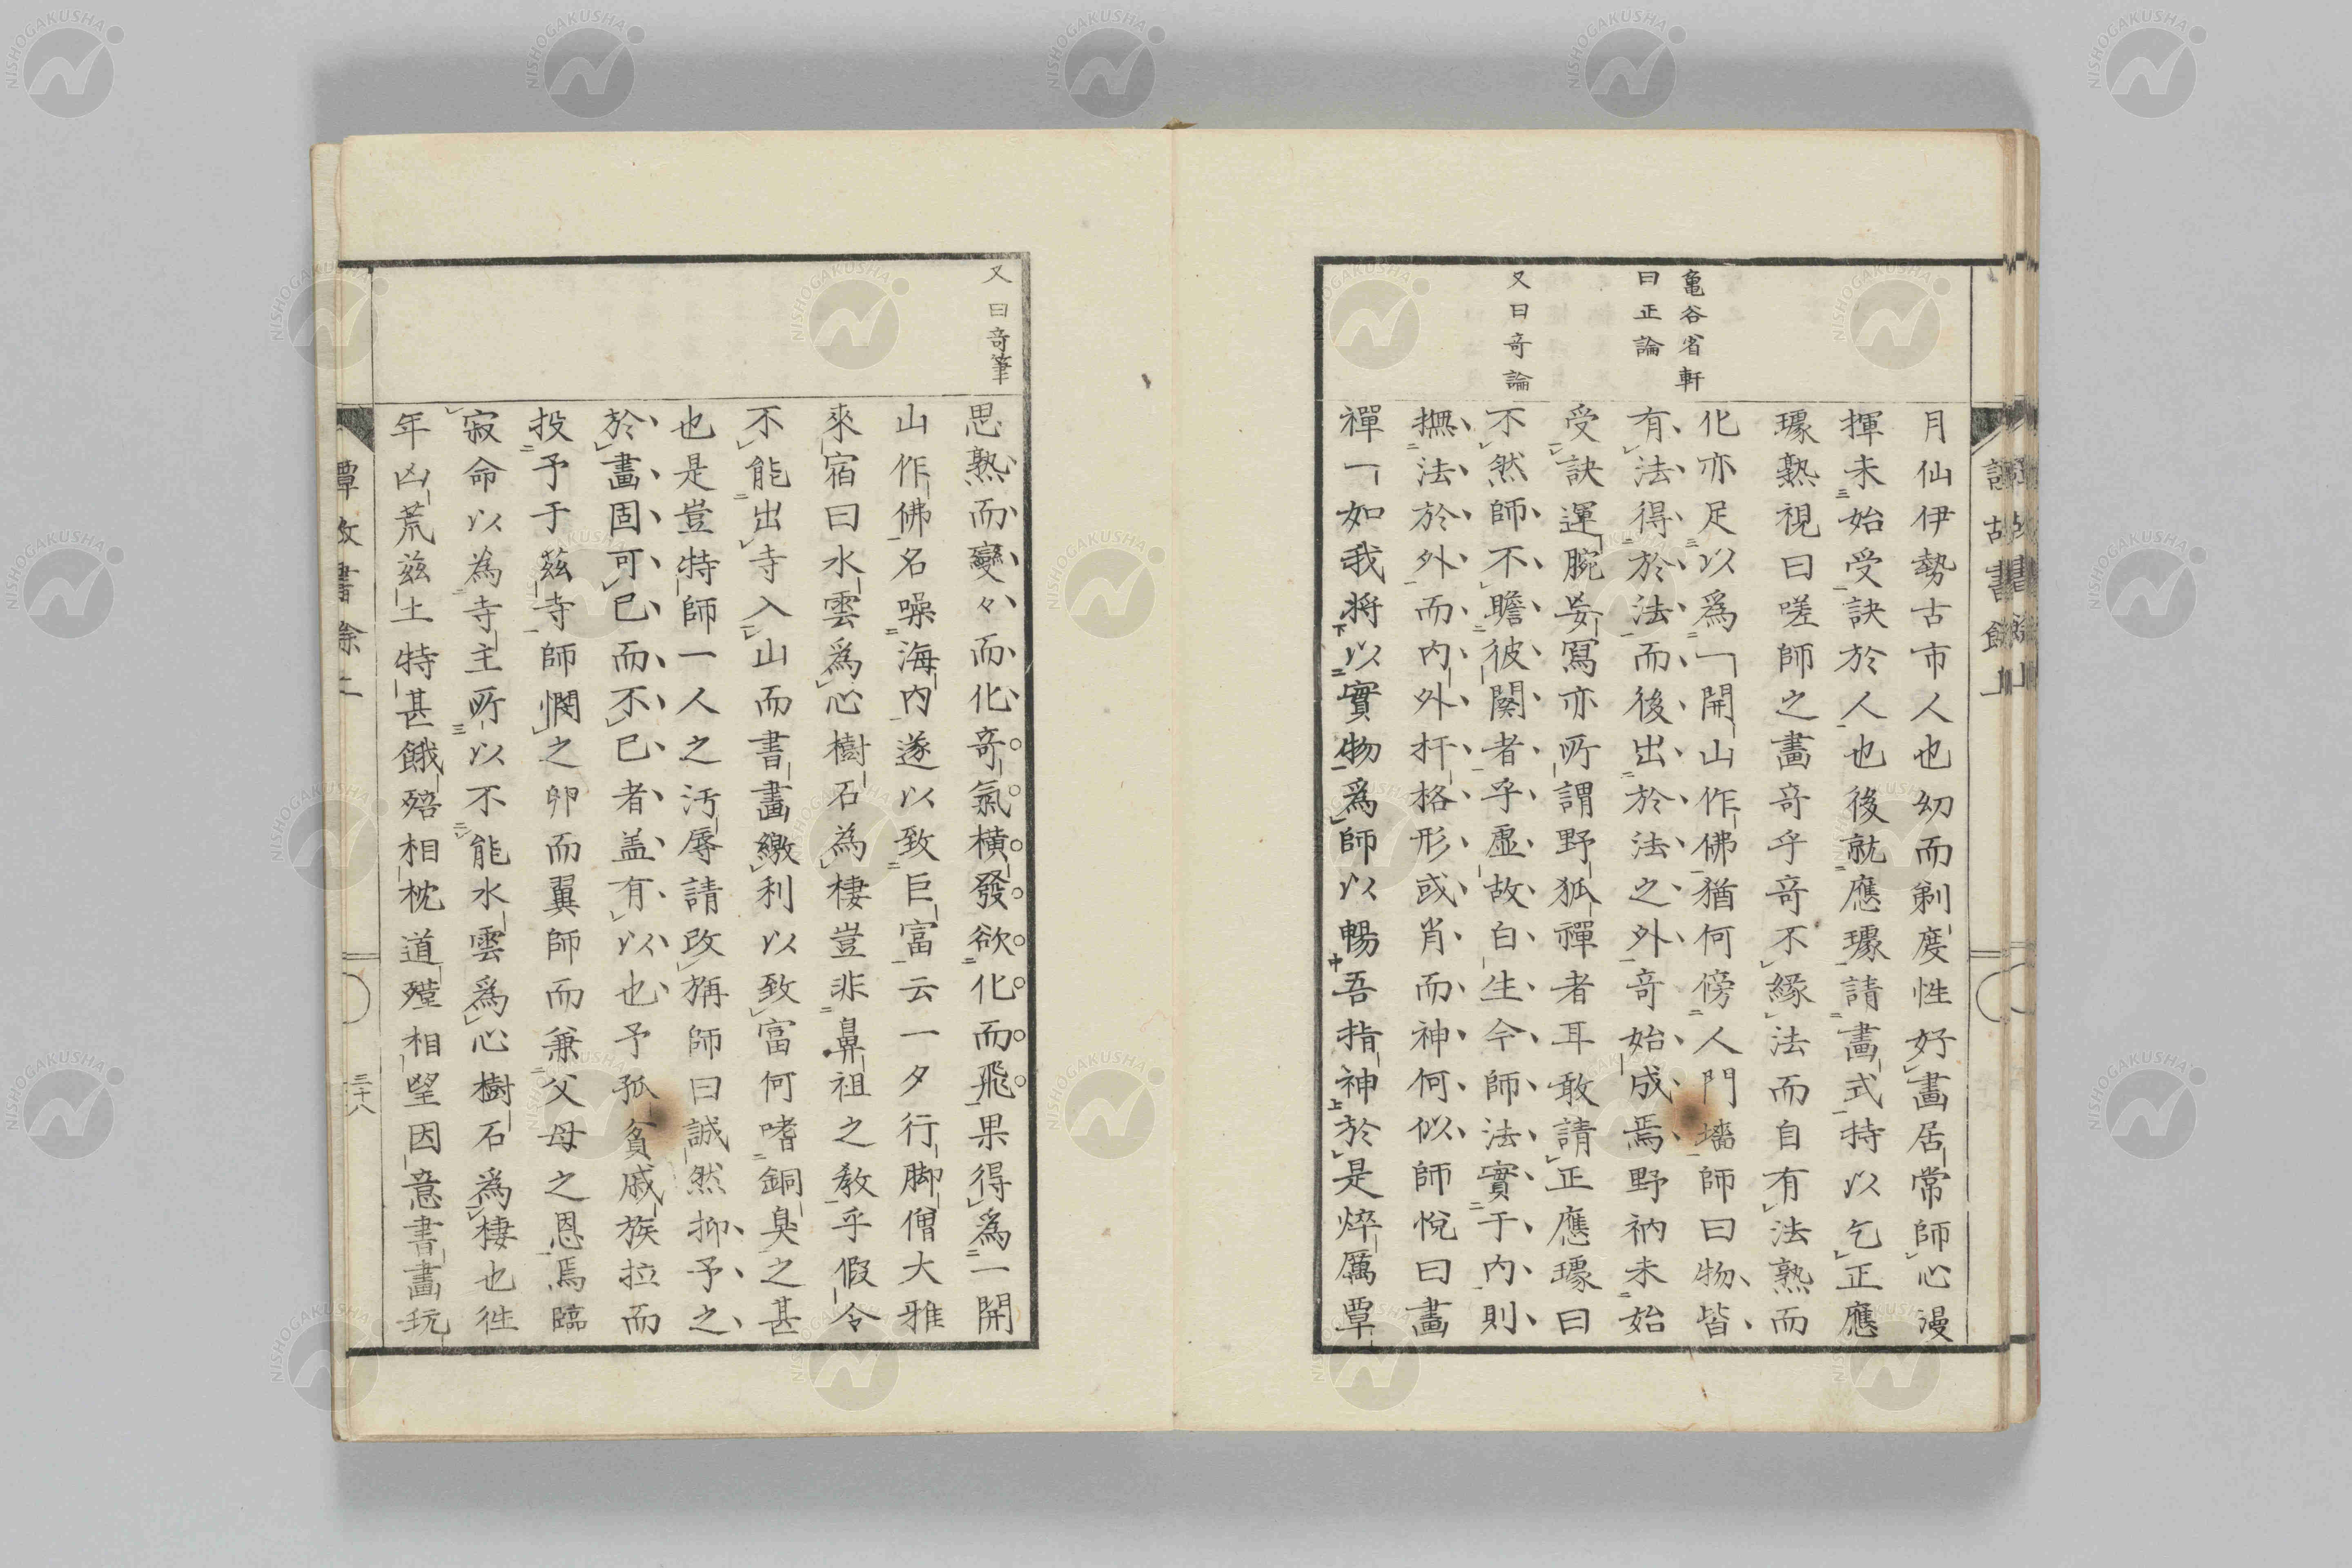 亀谷省軒
曰正論
又曰奇論
月仙伊勢古市人也幼而剃度性好畫居常師心漫
揮未始受訣於人也後就應璩請畫式持以乞正應
璩熟視曰嗟師之畫奇乎奇不緣法而自有法熟而
化亦足以爲一開山作佛猶何傍人門墻師曰物皆
有法得於法而後出於法之外奇始成焉野衲未始
受訣運腕妄寫亦所謂野狐禪者耳敢請正應璩曰
不然師不瞻彼闋者乎虛故白生今師法實于内則
撫法於外而内外扞格形或肖而神何似師悅曰畫
禪一如我將以實物爲師以暢吾指神於是焠厲覃
又曰奇筆
思熟而變々而化奇氣橫發欲化而飛果得爲一開
山作佛名噪海内遂以致巨富云一夕行脚僧大雅
來宿曰水雲爲心樹石為棲豈非鼻祖之教乎假令
不能出寺入山而書畫繳利以致富何嗜銅臭之甚
也是豈特師一人之汚辱請改稱師曰誠然抑予之
於畫固可已而不已者盖有以也予孤貧戚族拉而
投予于茲寺師憫之卵而翼師而兼父母之恩焉臨
寂命以為寺主所以不能水雲爲心樹石爲棲也徃
年凶荒茲土特甚餓殍相枕道殣相望因意書畫玩
三十八